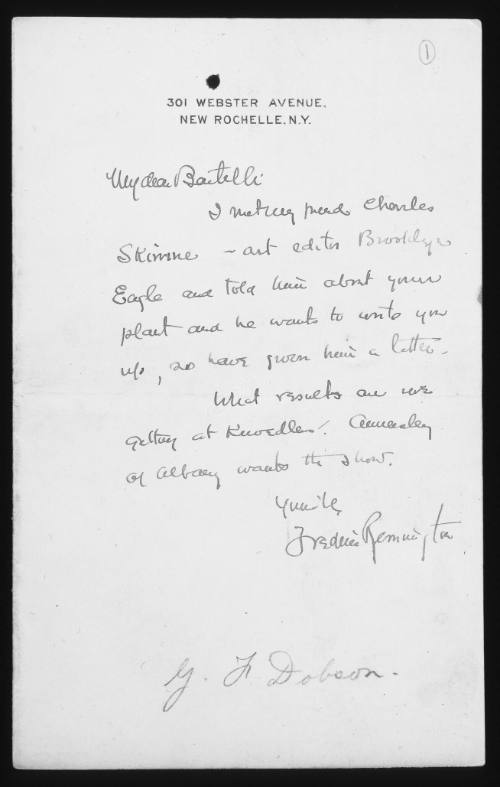 1
301 WEBSTER AVENUE.
NEW ROCHELLE. N.Y.
My dear Bertelli
I met my friend Charles
Skinner - art editor Brooklyn
Eagle and told him about your
plant and he wants to write you
up, so have given him a letter.
What results are we
getting at Knoedler. Annesley
of Albany wants the show.
Yours
Frederic Remington
G. F. Dobson.